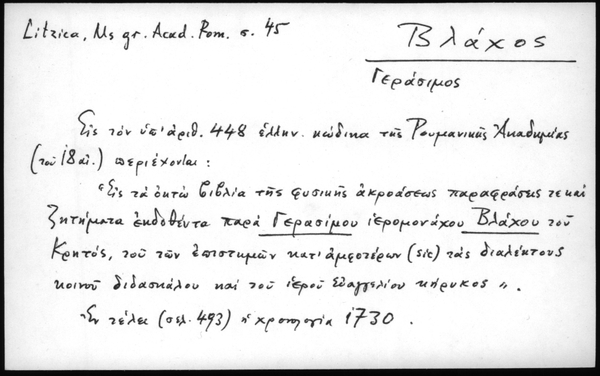 Litzica, Ms gr. Acad. Rom. σ. 45
Βλάχος
Γεράσιμος
Εἰς τὸν ὑπ' ἀριθ. 448 ἑλλην. κώδικα τῆς Ρουμανικῆς Ἀκαδημίας
(τοῦ 18 αἰ.) περιέχονται :
"Εἰς τὰ ὀκτὼ βιβλία τῆς φυσικῆς ἀκροάσεως παραφράσεις τε καὶ
ζητήματα ἐκδοθέντα παρὰ Γερασίμου ἱερομονάχου Βλάχου τοῦ
Κρητός, τοῦ τῶν ἐπιστημῶν κατ' ἀμφοτέρων (sic) τὰς διαλέκτους
κοινοῦ διδασκάλου καὶ τοῦ ἱεροῦ Εὐαγγελίου κήρυκος ".
Ἐν τέλει (σελ. 493) ἡ χρονολογία 1730 .